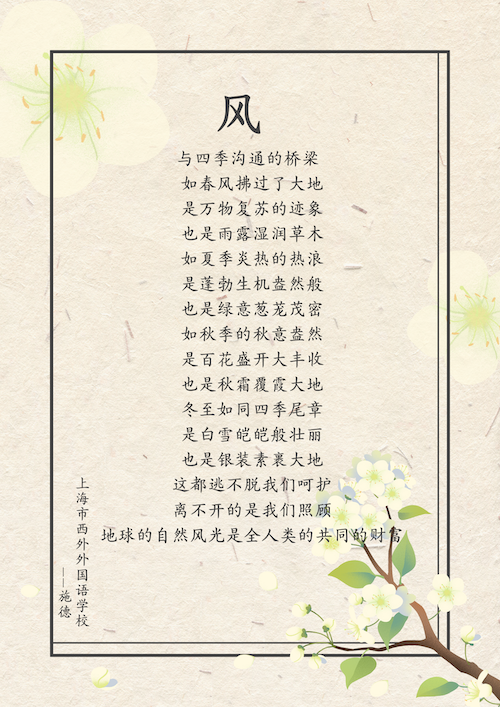 风
与四季沟通的桥梁
如春风拂过了大地
是万物复苏的迹象
也是雨露湿润草木
如夏季炎热的热浪
是蓬勃生机盎然般
也是绿意葱茏茂密
如秋季的秋意盎然
是百花盛开大丰收
也是秋霜覆霞大地
冬至如同四季尾章
是白雪皑皑般壮丽
也是银装素裹大地
这都逃不脱我们呵护
离不开的是我们照顾
地球的自然风光是全人类的共同的财富
上海市西外外国语学校
——施德